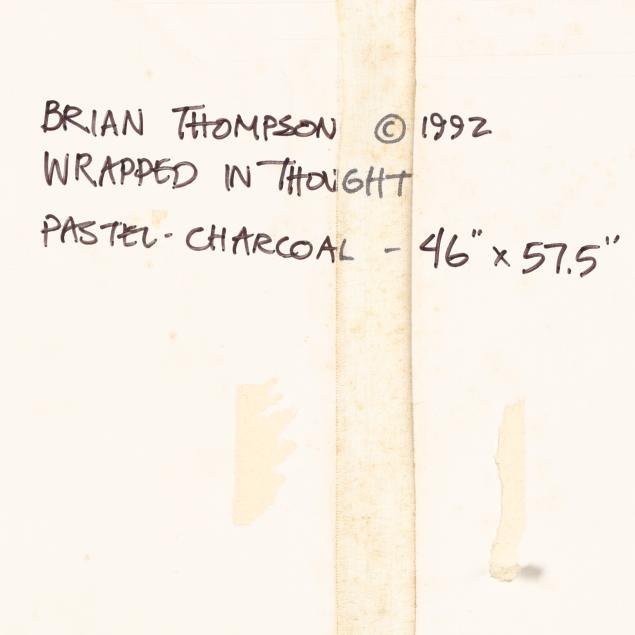 BRIAN THOMPSON © 1992
WRAPPED IN THOUGHT
PASTEL - CHARCOAL - 46" x 57.5"